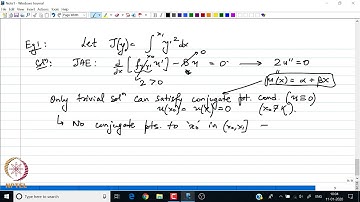 Note1 - Windows Journal
Eg1: Let J(y) = ∫_{x_0}^{x_1} y'^2 dx
Sol^n: JAE: d/dx [f_{y'y'} u'] - B u = 0 → 2u'' = 0
0
2 > 0
u(x) = α + βx
Only trivial sol^n can satisfy conjugate pt. cond (u ≡ 0)
u(x_0) = u(κ) = 0 (x_0 ≠ κ).
↳ No conjugate pts. to 'x_0' in (x_0, x_1] –
11-01-2020